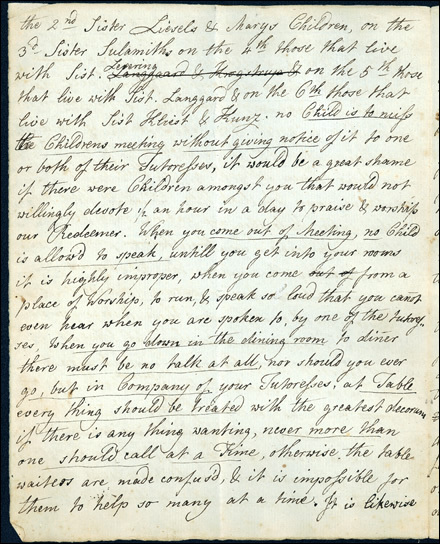 the 2nd Sister Liesels & Marys Children, on the
3d Sister Sulamiths on the 4th those that live
with Sist. Langgaard & Krogstrup & on the 5th those
that live with Sist. Langgard & on the 6th those that
live with Sist Kliest & Kunz, no Child is to miss
the Childrens meeting without giving notice of it to one
or both of their Tutoresses, it would be a great shame
if there were Children amongst you that would not
willingly devote ½ an hour in a day to praise & worship
our Redeemer. When you come out of Meeting, no Child
is allow'd to speak, untill you get into your rooms
it is highly improper, when you come out of from a
place of Worship, to run, & speak so loud that you cannot
even hear when you are spoken to, by one of the tutores-
ses, When you go down in the dining room to diner
there must be no talk at all, nor should you ever
go, but in Company of your Tutoresses, at Table
every thing should be treated with the greatest decorum
if there is any thing wanting, never more than
one should call at a Time, otherwise the table
waiters are made confusd, & it is impossible for
them to help so many at a time. It is likewise